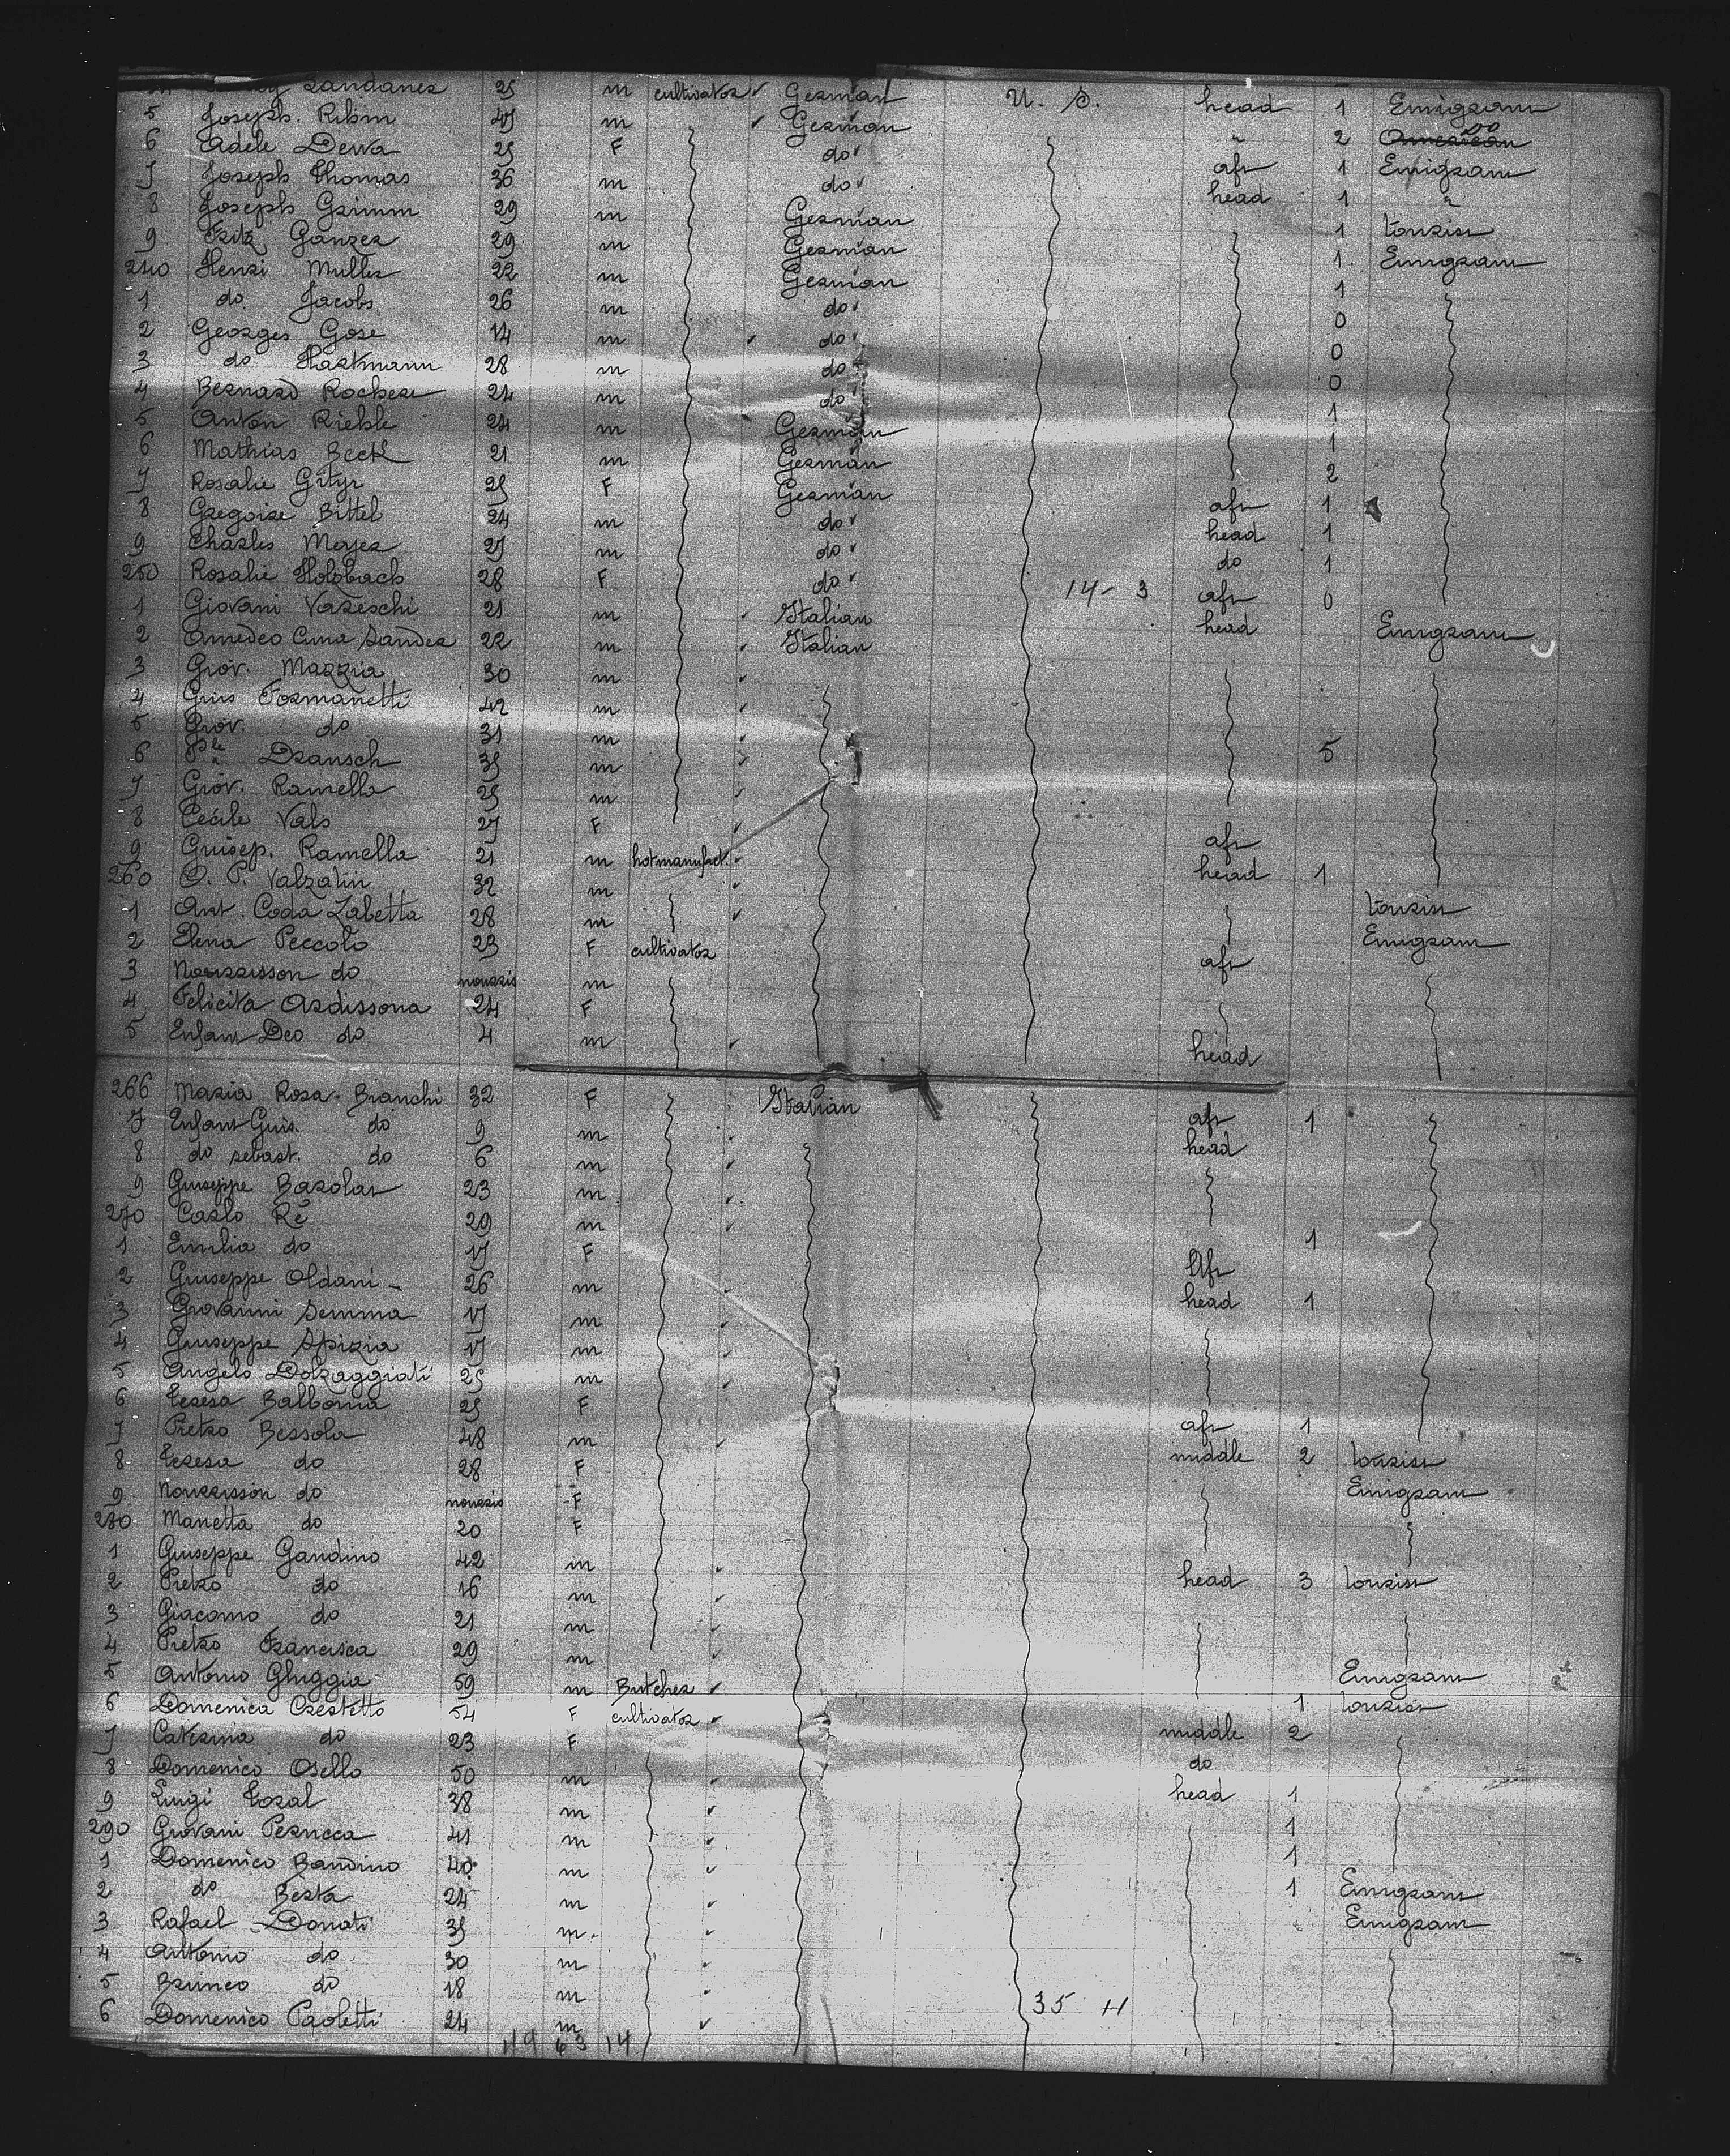 Landanez 25 m cultivator German U. S. head 1 Emigrant
5 Joseph. Rihm 45 m German " 2 do
6 Adele Dewa 25 F do aft 1 Emigrant
7 Joseph Thomas 36 m do head 1 "
8 Joseph Grimm 29 m German 1 tourist
9 Fritz Ganzer 29 m German 1 Emigrant
240 Henri Muller 22 m German 1
1 do Jacobs 26 m do 0
2 Georges Gose 14 m do 0
3 do Hartmann 28 m do 0
4 Bernard Rocher 24 m do 1
5 Anton Riehle 24 m German 1
6 Mathias Beck 21 m German 2
7 Rosalie Gityr 25 F German aft 1
8 Gregoire Bittel 24 m do head 1
9 Charles Meyer 27 m do do 1
250 Rosalie Holzbach 28 F do 14 - 3 aft 0
1 Giovani Vareschi 21 m Italian head Emigrant
2 Amedeo Cuma Sander 22 m Italian
3 Giov. Mazzia 30 m
4 Guis Formanetti 42 m
5 Giov. do 31 m
6 Dransch 35 m 5
7 Giov. Ramella 25 m
8 Cecile Vals 27 F aft
9 Guisep. Ramella 21 m hotmanufact. head 1
260 O. P. Valzalin 32 m tourist
1 Ant. Coda Zabetta 28 m Emigrant
2 Elena Peccolo 23 F cultivator aft
3 Nourrisson do nourris m
4 Felicita Ardissona 24 F
5 Enfant Deo do 4 m head
266 Maria Rosa Bianchi 32 F Italian aft 1
7 Enfant Guis. do 9 m head
8 do sebast. do 6 m
9 Guiseppe Barolat 23 m
270 Carlo Ré 29 m 1
1 Emilia do 17 F Aft
2 Giuseppe Oldani - 26 m head 1
3 Giovanni Semma 17 m
4 Giuseppe Spizia 17 m
5 Angelo Dolzaggiati 25 m
6 Teresa Balboma 25 F aft 1
7 Pietro Bessola 48 m middle 2 tourist
8 Teresa do 28 F Emigrant
9 Nourrisson do nourris F
280 Manetta do 20 F
1 Giuseppe Gandino 42 m head 3 tourist
2 Pietro do 16 m
3 Giacomo do 21 m
4 Pietro Francisca 29 m Emigrant
5 Antonio Ghiggia 59 m Butcher 1 tourist
6 Domenica Crestetto 54 F cultivator middle 2
7 Caterina do 23 F do
8 Domenico Osello 50 m head 1
9 Luigi Tozal 38 m 1
290 Giovani Perucca 41 m 1
1 Domenico Bandino 40 m 1 Emigrant
2 do Berta 24 m Emigrant
3 Rafael Donati 35 m
4 Antonio do 30 m
5 Bruneo do 18 m
6 Domenico Paoletti 24 m 35 H
49 63 14